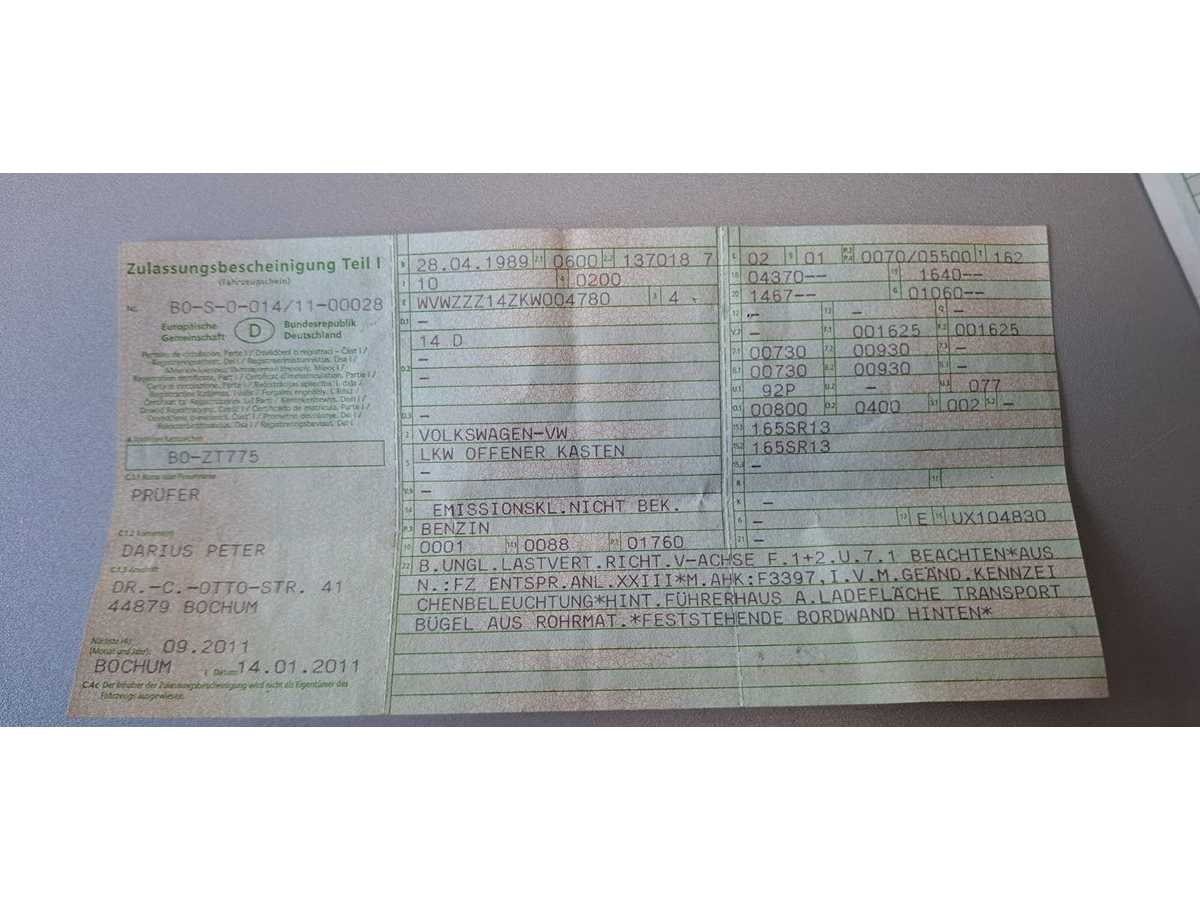 Zulassungsbescheinigung Teil I
(Fahrzeugschein)
Nr. BO-S-0-014/11-00028
Europäische Gemeinschaft D Bundesrepublik Deutschland
BO-ZT775
PRÜFER
DARIUS PETER
C.1.3 Anschrift
DR.-C.-OTTO-STR. 41
44879 BOCHUM
Nächste HU
(Monat und Jahr): 09.2011
BOCHUM Datum 14.01.2011
C.4c Der Inhaber der Zulassungsbescheinigung wird nicht als Eigentümer des
Fahrzeugs ausgewiesen.
B 28.04.1989 2.1 0600 2.2 137018 7
J 10 4 0200
E WVWZZZ14ZKW004780 3 4
D.1 –
14 D
D.2 –
–
D.3 –
2 VOLKSWAGEN-VW
5 LKW OFFENER KASTEN
V.9 –
14 EMISSIONSKL.NICHT BEK.
P.3 BENZIN
10 0001 14.1 0088 P.1 01760
L 02 9 01 P.2 P.4 0070/05500 T 162
18 04370-- 19 1640--
20 1467-- G 01060--
12 – 13 – Q –
V.7 – F.1 001625 F.2 001625
7.1 00730 7.2 00930 7.3 –
8.1 00730 8.2 00930 8.3 –
U.1 92P U.2 – U.3 077
O.1 00800 O.2 0400 S.1 002 S.2 –
15.1 165SR13
15.2 165SR13
15.3 –
R – 11
K –
6 – 17 E 16 UX104830
21 –
22 B.UNGL.LASTVERT.RICHT.V-ACHSE F.1+2.U.7.1 BEACHTEN*AUS
N.:FZ ENTSPR.ANL.XXIII*M.AHK:F3397,I.V.M.GEÄND.KENNZEI
CHENBELEUCHTUNG*HINT.FÜHRERHAUS A.LADEFLÄCHE TRANSPORT
BÜGEL AUS ROHRMAT.*FESTSTEHENDE BORDWAND HINTEN*